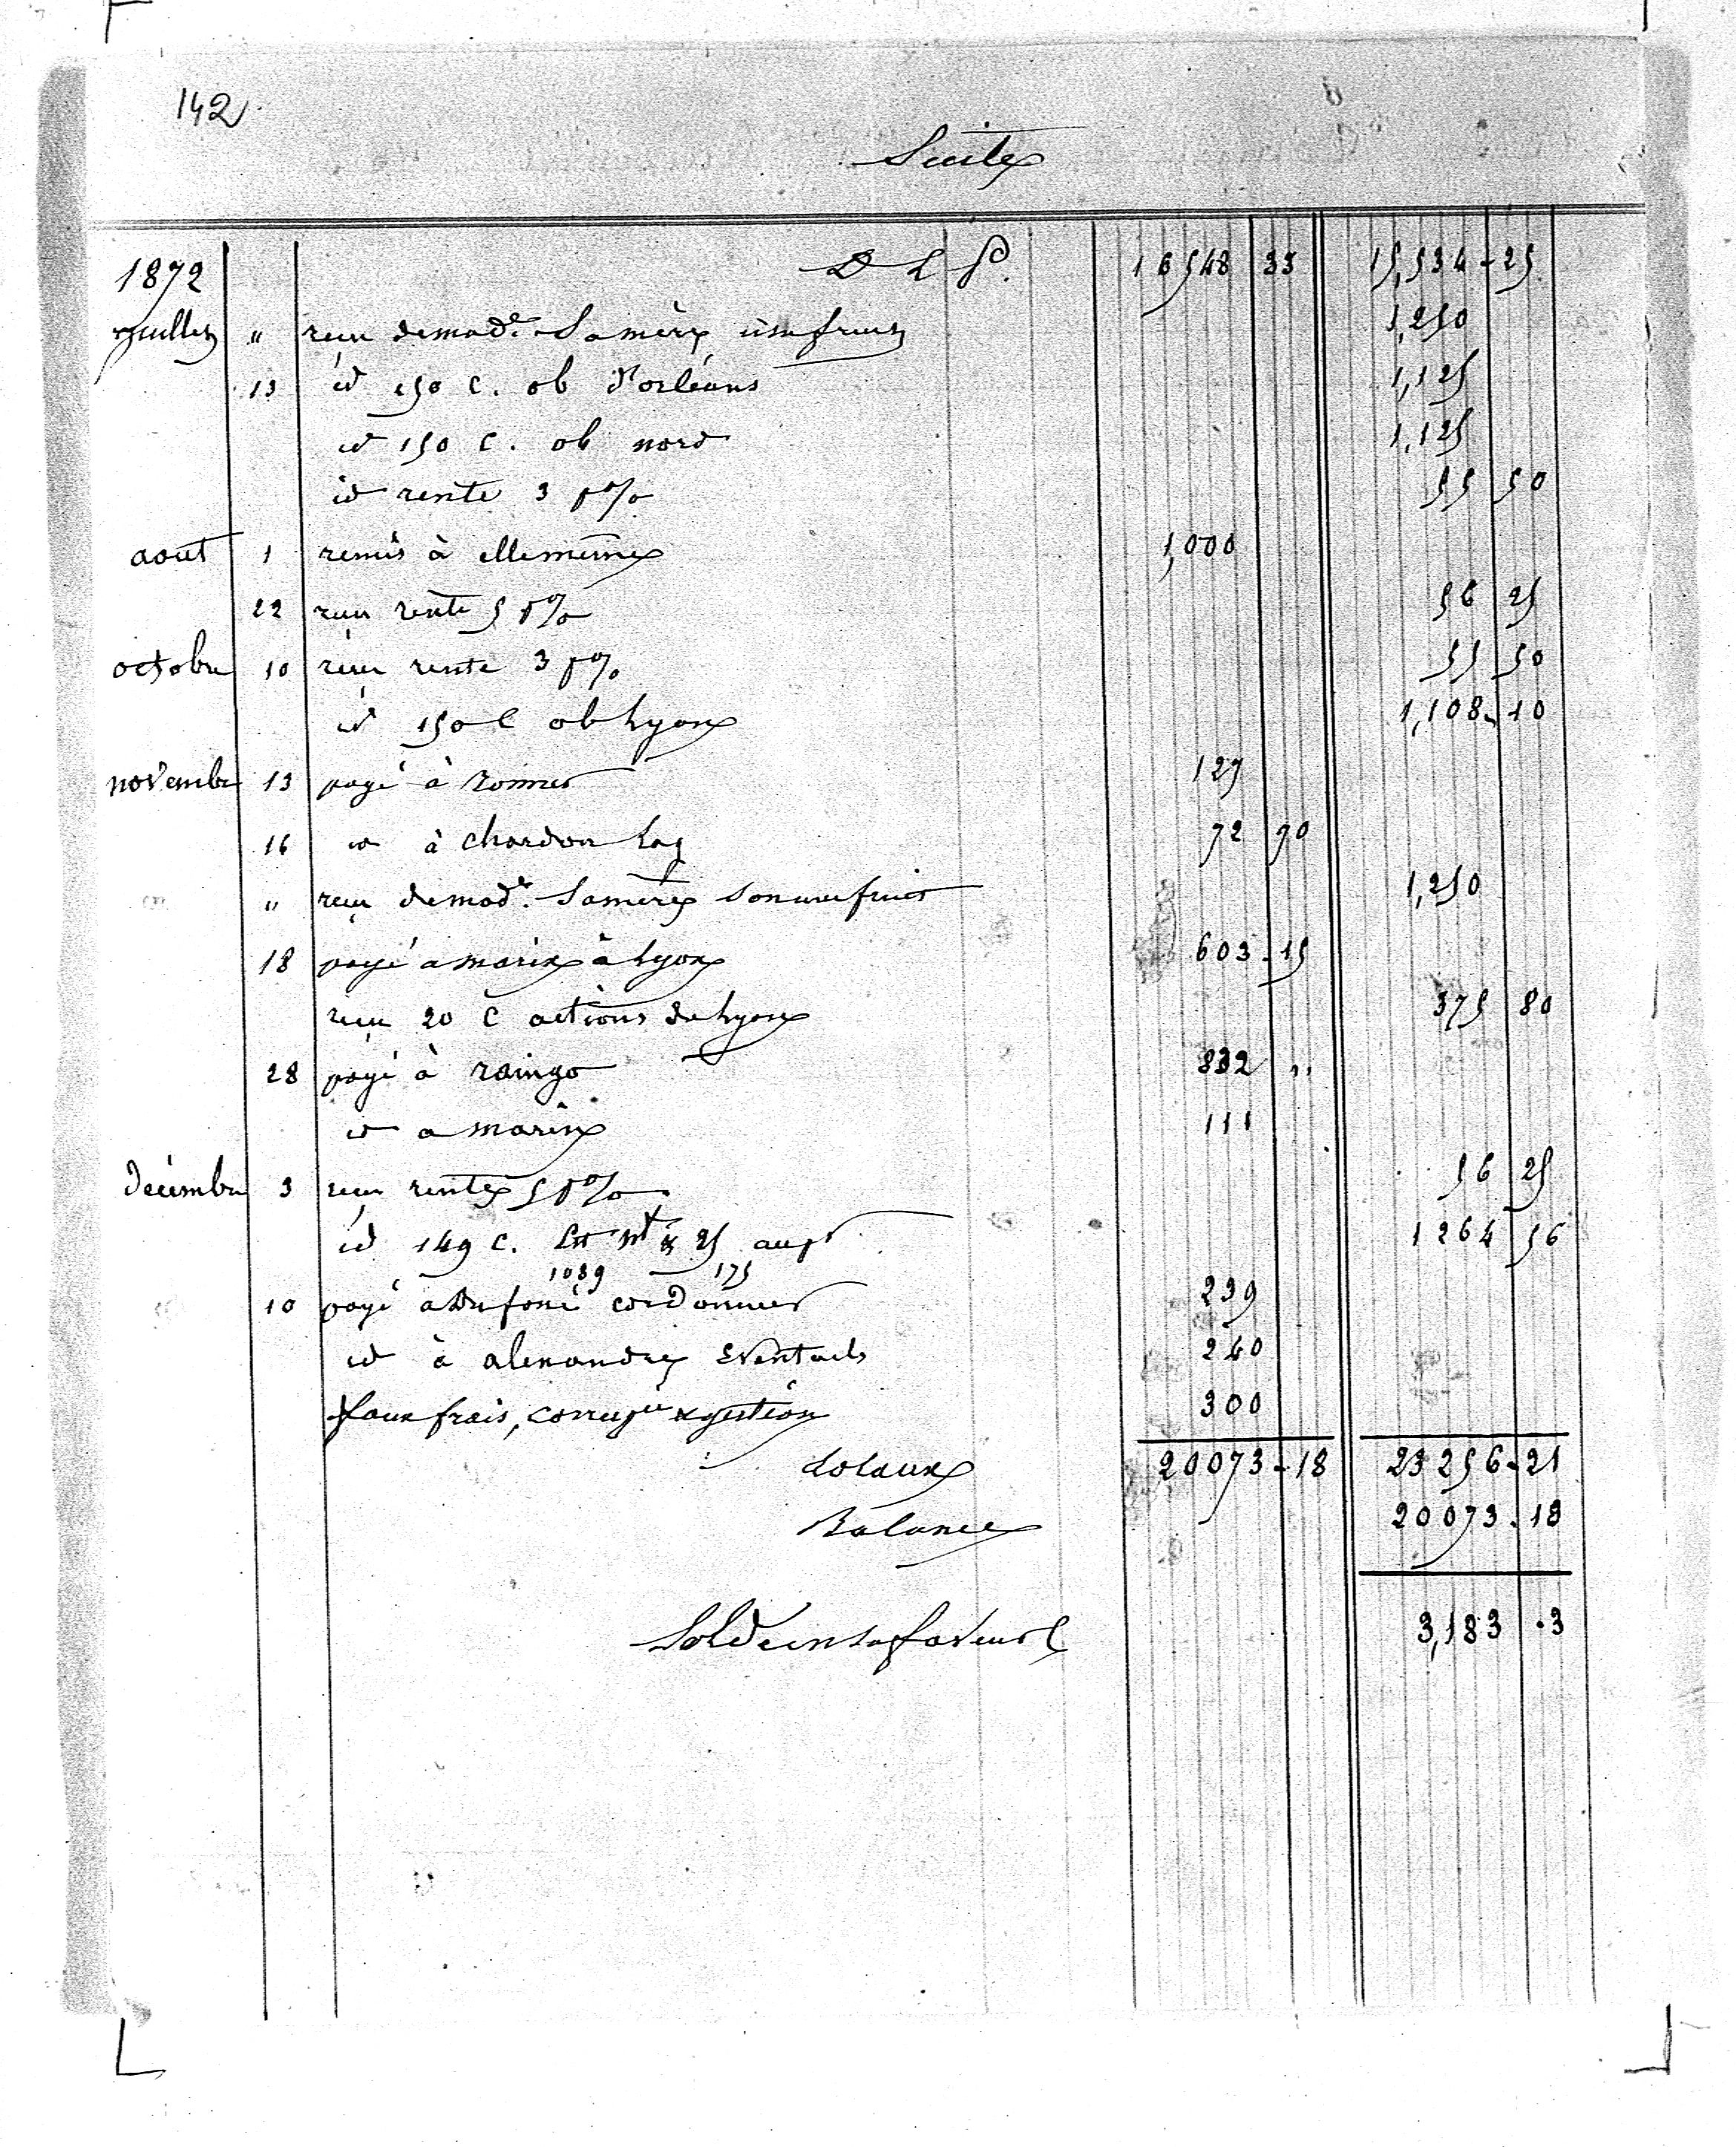 142
Suite
1872 D L P. 16548 33 15,534 - 25
juillet " reçu de mad.e Sa mère usufruit 1,250
13 id 150 c. ob d'orléans 1,125
id 150 c. ob nord 1,125
id rente 3 p% 55 50
aout 1 remis à elle même 1,000
22 reçu rente 5 p% 56 25
octobre 10 reçu rente 3 p% 55 50
id 150 c ob Lyon 1,108 - 10
novembre 13 payé à 127
16 id à chardon Lag 72 70
" reçu de mad.e Sa mère son usufruit 1,250
18 payé a marix à Lyon 603 - 15
reçu 20 c actions de Lyon 375 80
28 payé à raingo 832 "
id a marix 111
décembre 3 reçu rente 5 p% 56 25
id 149 c. 25 1264 56
1089 175
10 payé a cordonnier 239
id à alexandre Eventails 240
faux frais, corresp.ce & gestion 300
totaux 20073 - 18 23256 - 21
Balance 20073 - 18
Solde en sa faveur 3,183 . 3